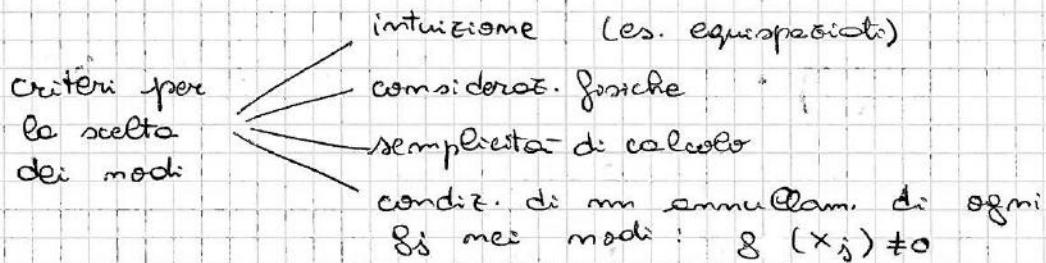 criteri per
la scelta
dei nodi
intuizione (es. equispaziati)
consideraz. fisiche
semplicità di calcolo
condiz. di nn annullam. di ogni
gj nei nodi: g (xj) ≠0